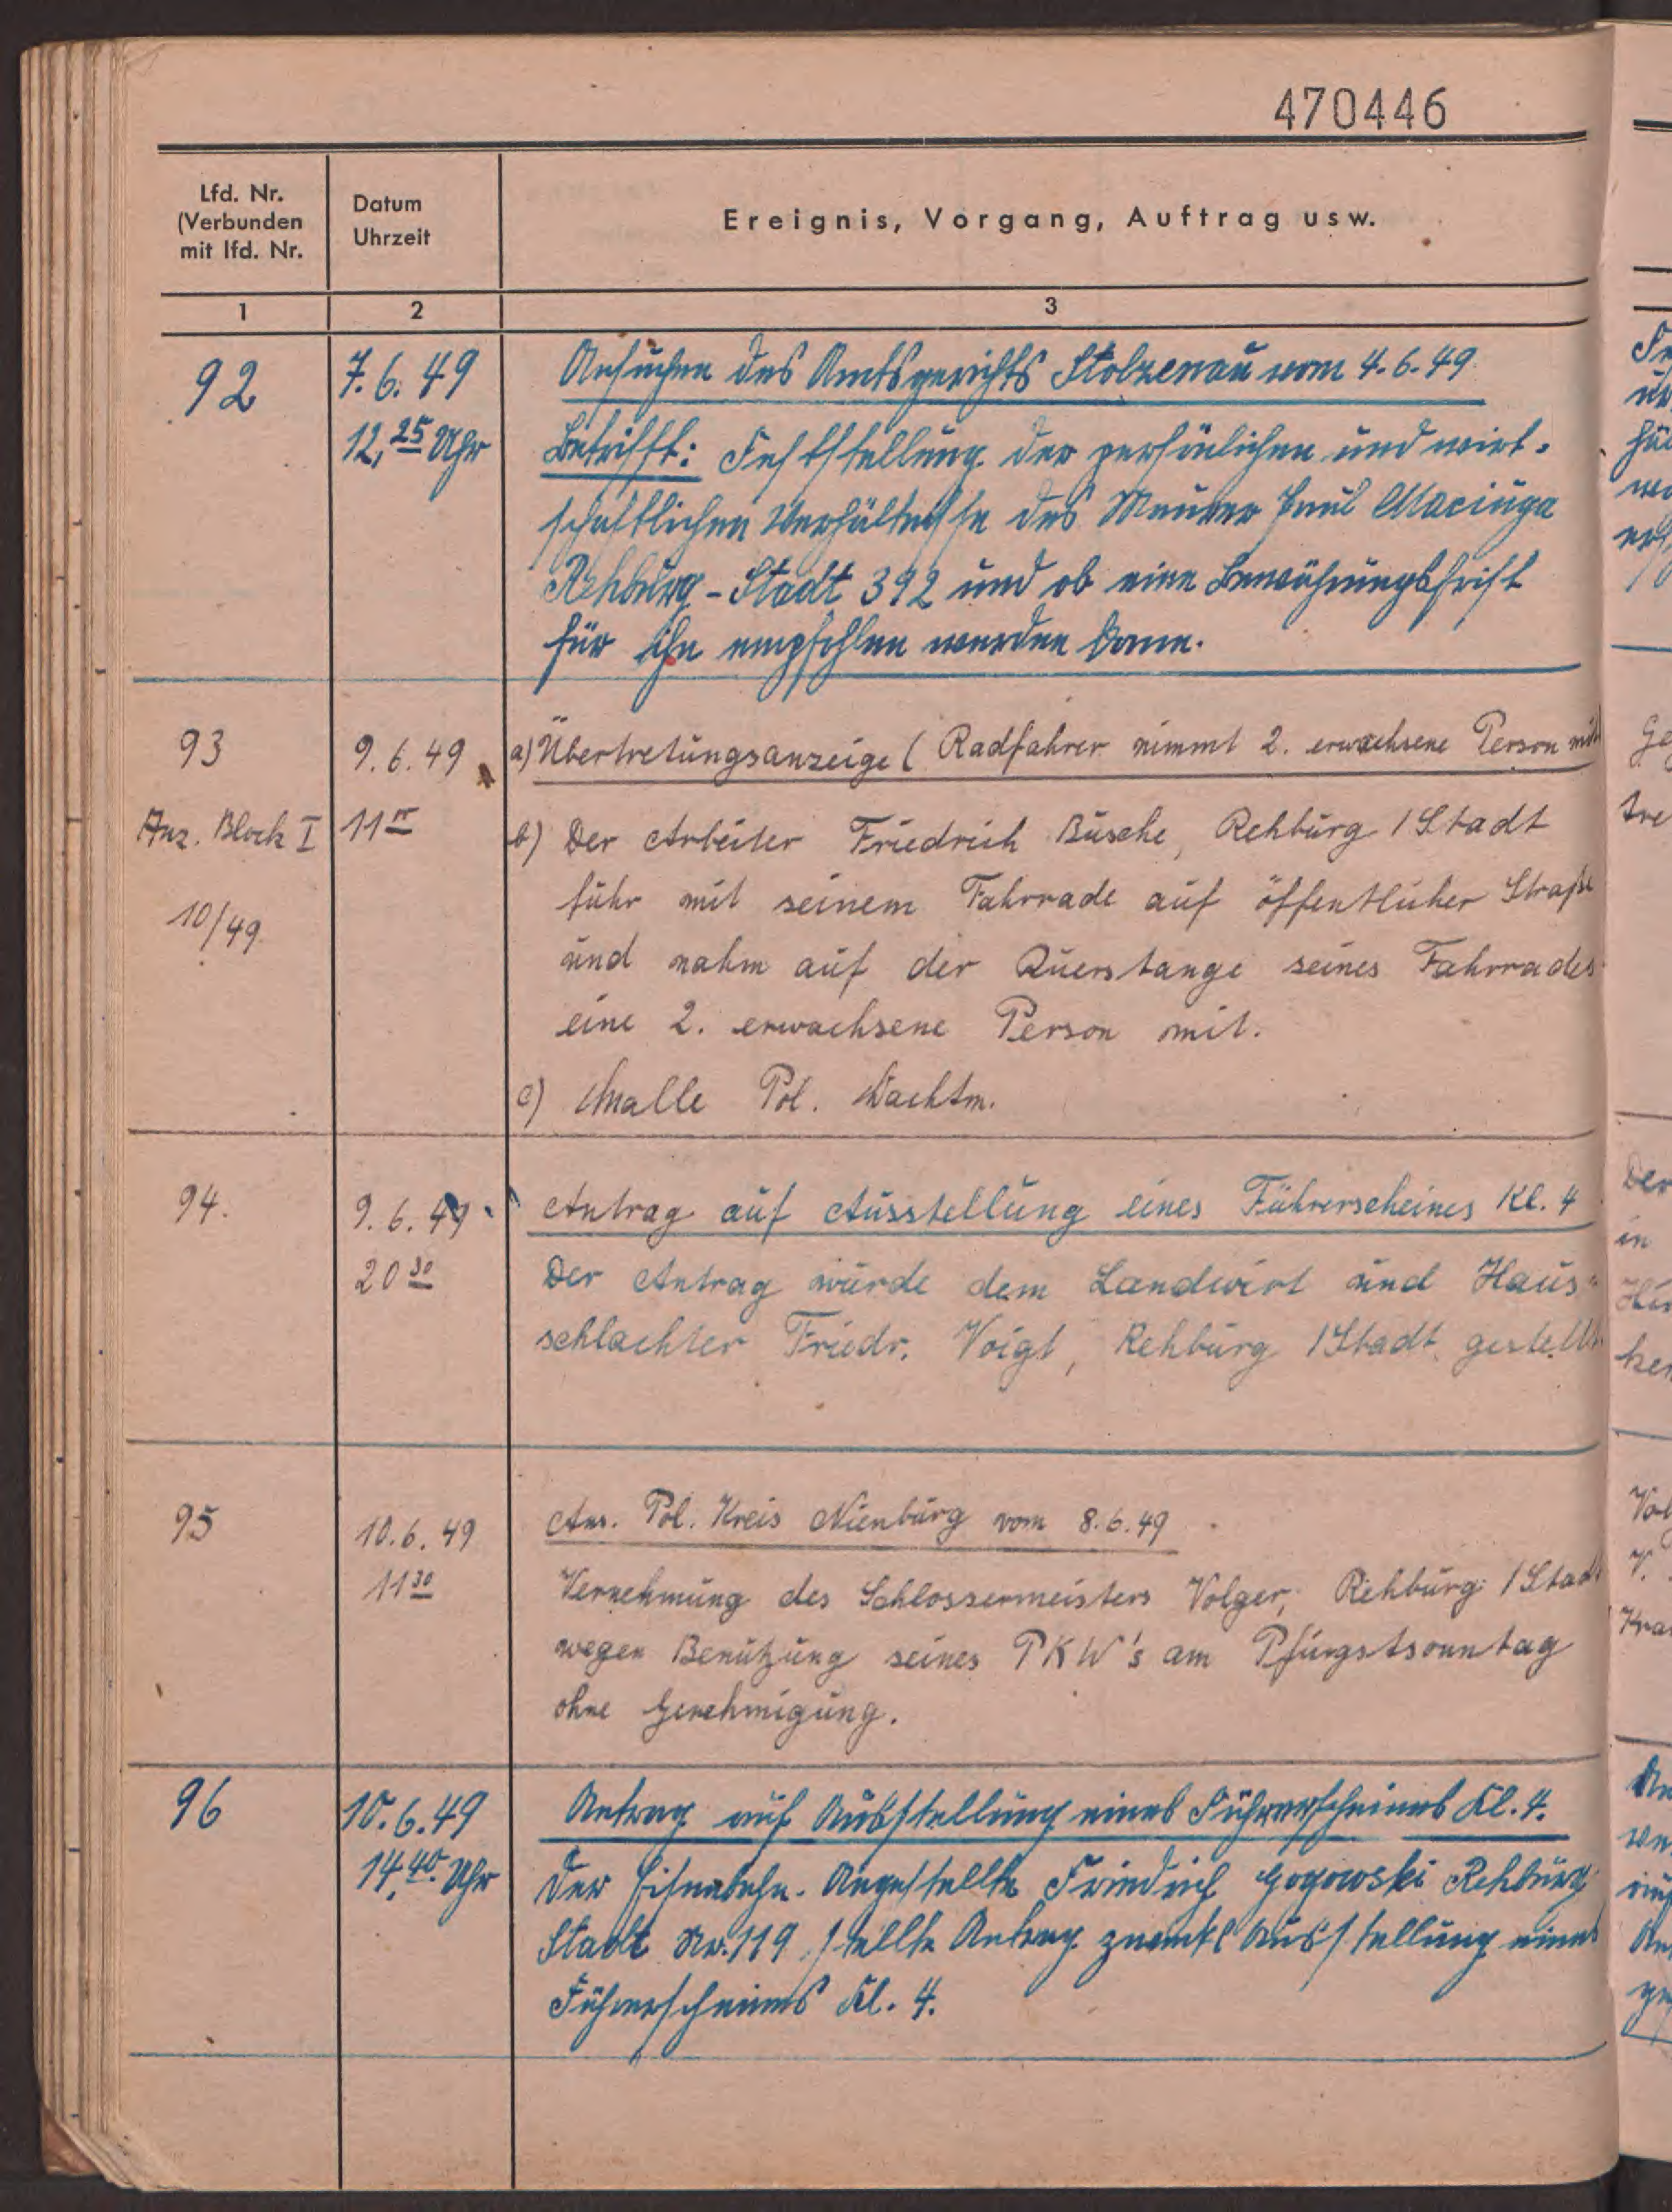 470446
Lfd. Nr.
(Verbunden
mit lfd. Nr.
Datum
Uhrzeit
Ereignis, Vorgang, Auftrag usw.
1
2
3
92
7.6.49
12,25 Uhr
Ansuchen des Amtsgerichts Stolzenau vom 4.6.49
Betrifft: Feststellung der persönlichen und wirt-
schaftlichen Verhältnisse des Maurer Paul Maciuga
Rehburg-Stadt 392 und ob eine Bewährungsfrist
für ihn empfohlen werden kann.
93
Anz. Block I
10/49
9.6.49
11
a) Übertretungsanzeige (Radfahrer nimmt 2. erwachsene Person mit
b) Der Arbeiter Friedrich Busche, Rehburg/Stadt
fuhr mit seinem Fahrrade auf öffentlicher Straße
und nahm auf der Querstange seines Fahrrades
eine 2. erwachsene Person mit.
c) Pol. Wachtm.
94.
9.6.49
20 30
Antrag auf Ausstellung eines Führerscheines Kl. 4
Der Antrag wurde dem Landwirt und Haus-
schlachter Friedr. Voigt, Rehburg/Stadt gestellt.
95
10.6.49
11 30
Pol. Kreis Nienburg vom 8.6.49
Vernehmung des Schlossermeisters Volger, Rehburg/Stadt
wegen Benutzung seines PKW's am Pfingstsonntag
ohne Genehmigung.
96
10.6.49
14,40 Uhr
Antrag auf Ausstellung eines Führerscheines Kl. 4.
Der Eisenbahn-Angestellte Friedrich Gogowski Rehburg
Stadt Nr. 119 stellte Antrag zwecks Ausstellung eines
Führerscheines Kl. 4.